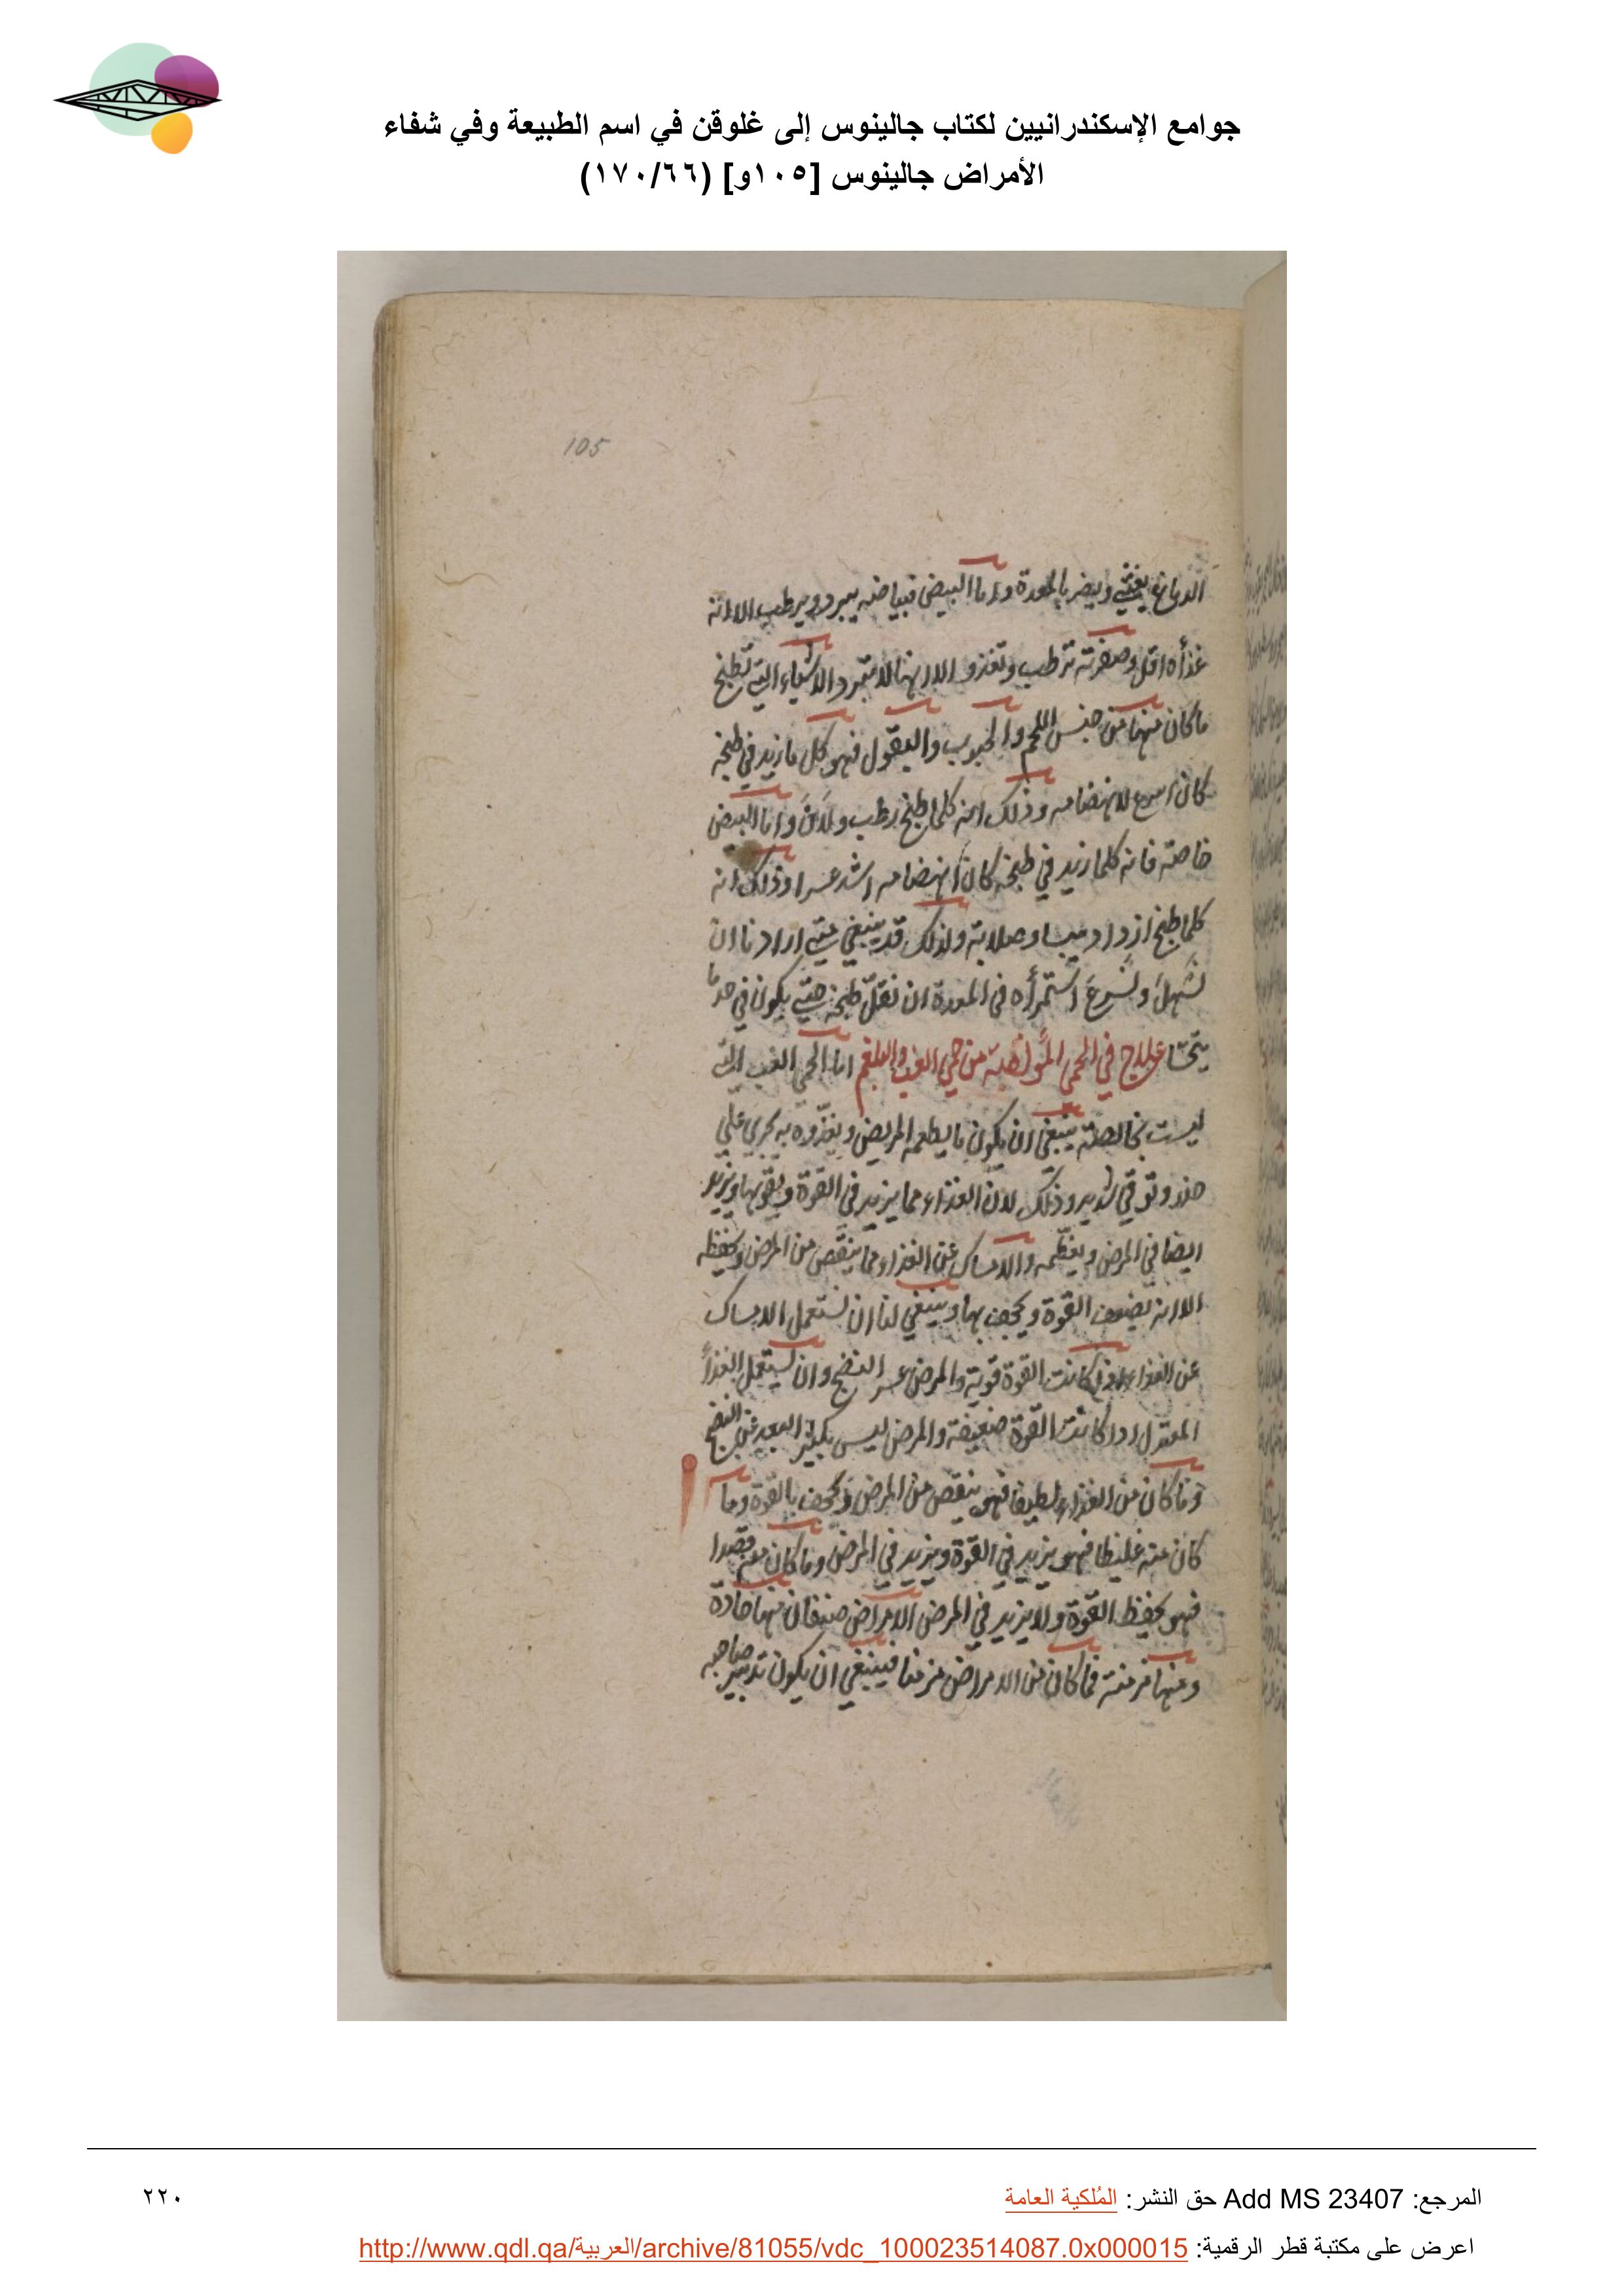 جوامع الإسكندرانيين لكتاب جالينوس إلى غلوقن في اسم الطبيعة وفي شفاء
الأمراض جالينوس [١٠٥و] (١٧٠/٦٦)
105
الدماغ يغثي ويضر بالمعدة واما البيض فبياضه يبرد ويرطب الا انه
غذأه اقل وصفرته ترطب وتغذو الا انها لا تبرد الاشياء التي تطبخ
ما كان منها من جنس اللحم والحبوب والبقول فهو كل ما زيد في طبخه
كان اسرع لانهضامه وذلك انه كلما طبخ رطب ولان واما البيض
خاصة فانه كلما زيد في طبخه كان انهضامه اشد عسرا وذلك انه
كلما طبخ ازداد يبسا وصلابة ولذلك قد ينبغي متى اردنا ان
نسهل ونسرع استمرأه في المعدة ان نقلل طبخه حتى يكون في حد ما
يتحسا علاج في الحمى المؤلفة من حمى الغب والبلغم اما الحمى الغب التي
ليست بخالصة ينبغي ان يكون ما يطعمه المريض ويغذوه به يجري على
حذر وتوقي شديد وذلك لان الغذاء مما يزيد في القوة ويقويها ويزيد
ايضا في المرض ويعظمه والامساك عن الغذاء مما ينقص من المرض ويحفظه
الا انه يضعف القوة ويجحف بها وينبغي لنا ان نستعمل الامساك
عن الغذاء اذا كانت القوة قوية والمرض عسر النضج وان نستعمل الغذأ
المعتدل اذا كانت القوة ضعيفة والمرض ليس بكثير البعد عن النضج
وما كان من الغذاء لطيفا فهو ينقص من المرض ويجحف بالقوة وما
كان منه غليظا فهو يزيد في القوة ويزيد في المرض وما كان منه قصدا
فهو يحفظ القوة ولا يزيد في المرض الامراض صنفان منها حادة
ومنها مزمنة فما كان من الامراض مزمنا فينبغي ان يكون تدبير صاحبه
المرجع: Add MS 23407 حق النشر: المُلكية العامة
٢٢٠
اعرض على مكتبة قطر الرقمية: http://www.qdl.qa/العربية/archive/81055/vdc_100023514087.0x000015